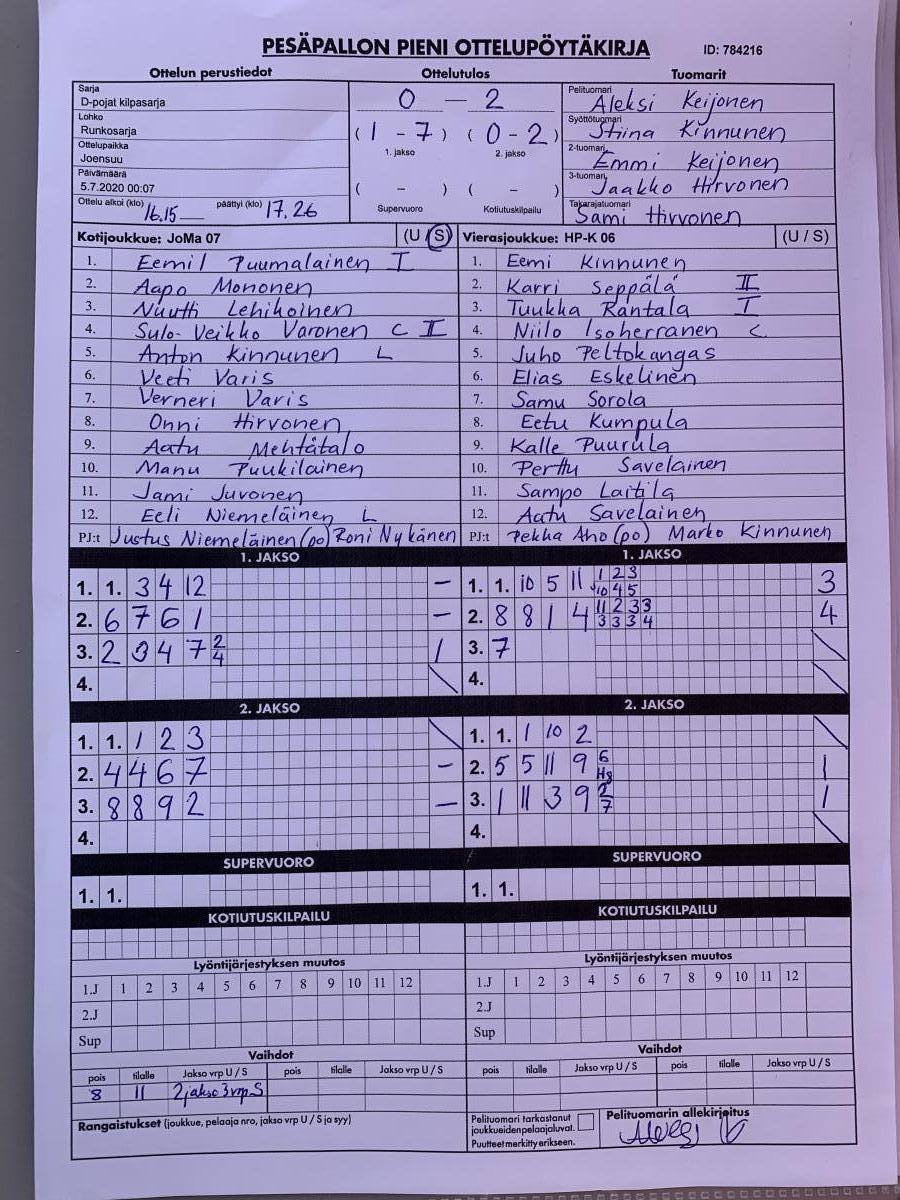 PESÄPALLON PIENI OTTELUPÖYTÄKIRJA ID: 784216
Ottelun perustiedot Ottelutulos Tuomarit
Sarja
D-pojat kilpasarja
Lohko
Runkosarja
Ottelupaikka
Joensuu
Päivämäärä
5.7.2020 00:07
Ottelu alkoi (klo) 16.15 päättyi (klo) 17.26
0 — 2
( 1 - 7 ) ( 0 - 2 )
1. jakso 2. jakso
( - ) ( - )
Supervuoro Kotiutuskilpailu
Pelituomari Aleksi Keijonen
Syöttötuomari Stiina Kinnunen
2-tuomari Emmi Keijonen
3-tuomari Jaakko Hirvonen
Takarajatuomari Sami Hirvonen
Kotijoukkue: JoMa 07 (U / S) Vierasjoukkue: HP-K 06 (U / S)
1. Eemil Puumalainen I 1. Eemi Kinnunen
2. Aapo Mononen 2. Karri Seppälä II
3. Nuutti Lehikoinen 3. Tuukka Rantala I
4. Sulo-Veikko Varonen C II 4. Niilo Isoherranen C
5. Anton Kinnunen L 5. Juho Peltokangas
6. Veeti Varis 6. Elias Eskelinen
7. Verneri Varis 7. Samu Sorola
8. Onni Hirvonen 8. Eetu Kumpula
9. Aatu Mehtätalo 9. Kalle Puurula
10. Manu Puukilainen 10. Perttu Savelainen
11. Jami Juvonen 11. Sampo Laitila
12. Eeli Niemeläinen L 12. Aatu Savelainen
PJ:t Justus Niemeläinen (po) Roni Nykänen PJ:t Pekka Aho (po) Marko Kinnunen
1. JAKSO 1. JAKSO
1. 1. 3 4 12 — 1. 1. 10 5 11 1 2 3 3
10 4 5
2. 6 7 6 1 — 2. 8 8 1 4 11 2 3 3 4
3 3 3 4
3. 2 3 4 7 2 1 3. 7
4
4. 4.
2. JAKSO 2. JAKSO
1. 1. 1 2 3 1. 1. 1 10 2
2. 4 4 6 7 — 2. 5 5 11 9 6 1
3. 8 8 9 2 — 3. 1 11 3 9 2 1
7
4. 4.
SUPERVUORO SUPERVUORO
1. 1. 1. 1.
KOTIUTUSKILPAILU KOTIUTUSKILPAILU
Lyöntijärjestyksen muutos Lyöntijärjestyksen muutos
1.J 1 2 3 4 5 6 7 8 9 10 11 12 1.J 1 2 3 4 5 6 7 8 9 10 11 12
2.J 2.J
Sup Sup
Vaihdot Vaihdot
pois tilalle Jakso vrp U / S pois tilalle Jakso vrp U / S pois tilalle Jakso vrp U / S pois tilalle Jakso vrp U / S
8 11 2 jakso 3 vrp S
Rangaistukset (joukkue, pelaaja nro, jakso vrp U / S ja syy)
Pelituomari tarkastanut
joukkueiden pelaajaluvat.
Puutteet merkitty erikseen.
Pelituomarin allekirjoitus